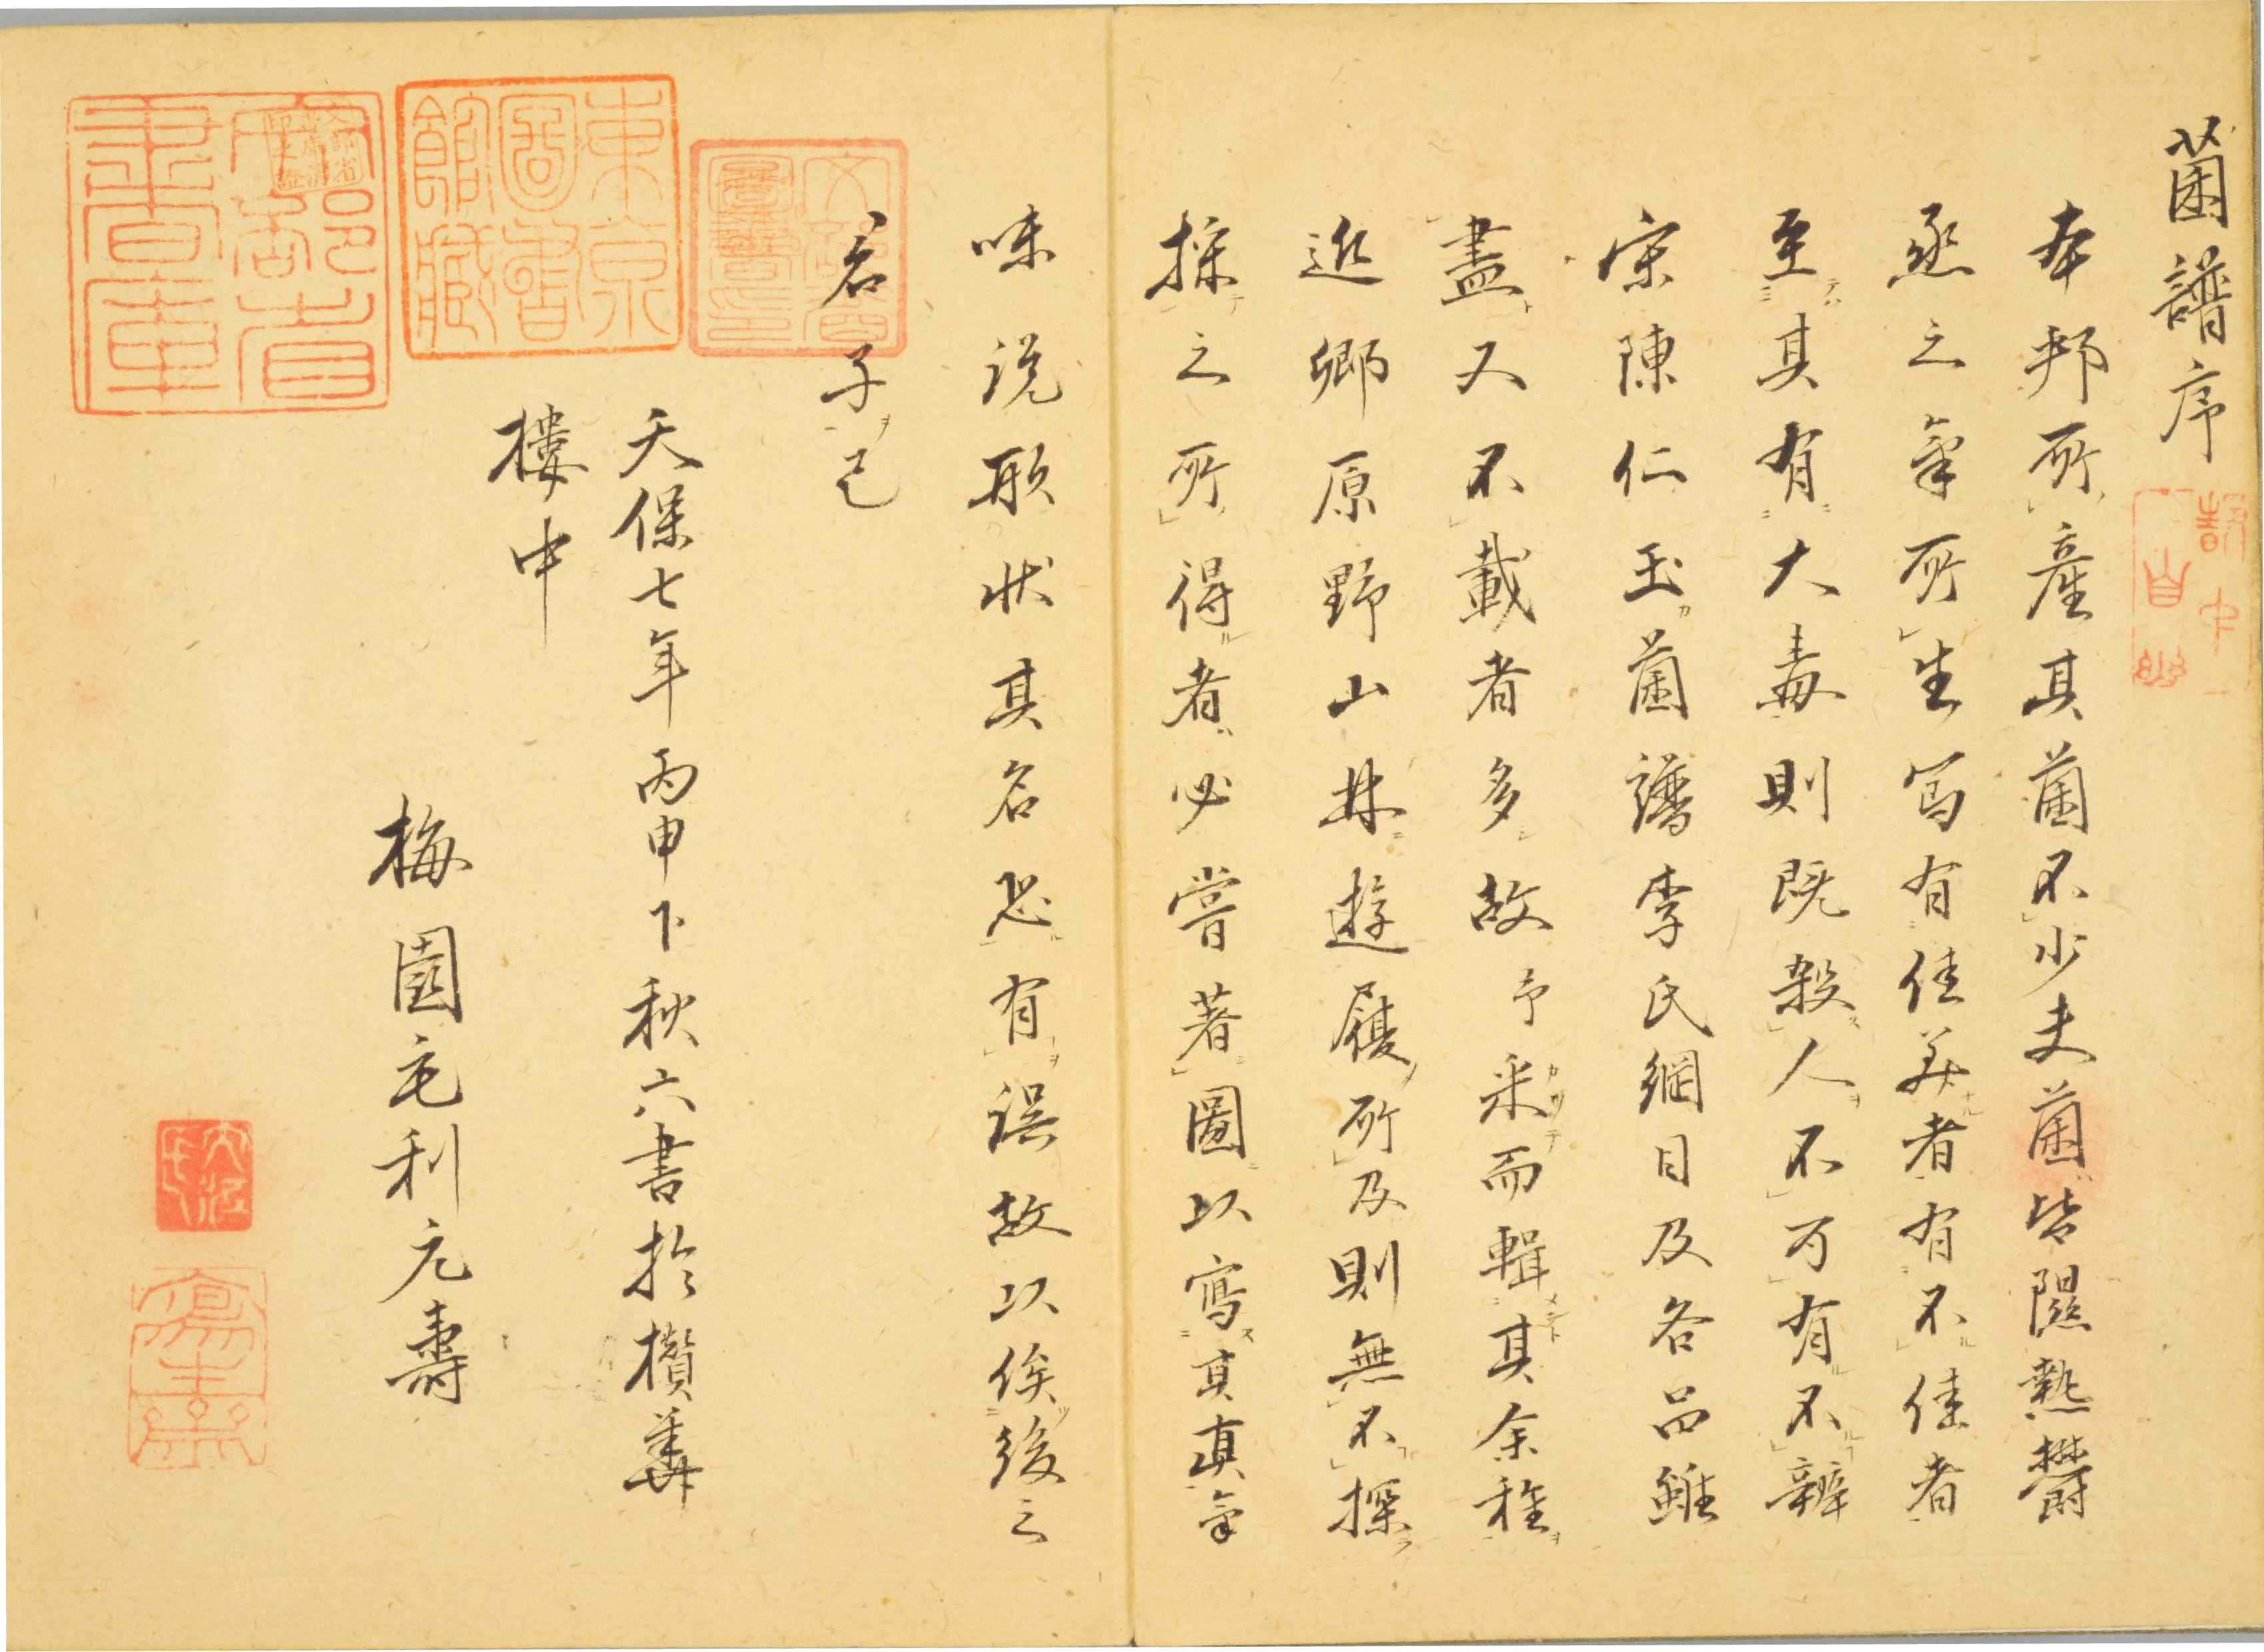 菌譜序
本邦所産其菌不少夫菌皆隰熱欝
烝之氣所生写有佳美者有不佳者
至其有大毒則既殺人不可有不辨
宋陳仁玉菌譜李氏綱目及各品雖
盡又不載者多故予采而輯其余種
近郷原野山林遊履所及則無不探
採之所得者必嘗著圖以寫其真氣
味説形状其名恐有誤故以俟後之
君子已
天保七年丙申下秋六書於攢華
樓中
梅園毛利元壽
文部省
圖書印
東京
圖書
館藏
文部省
書庫